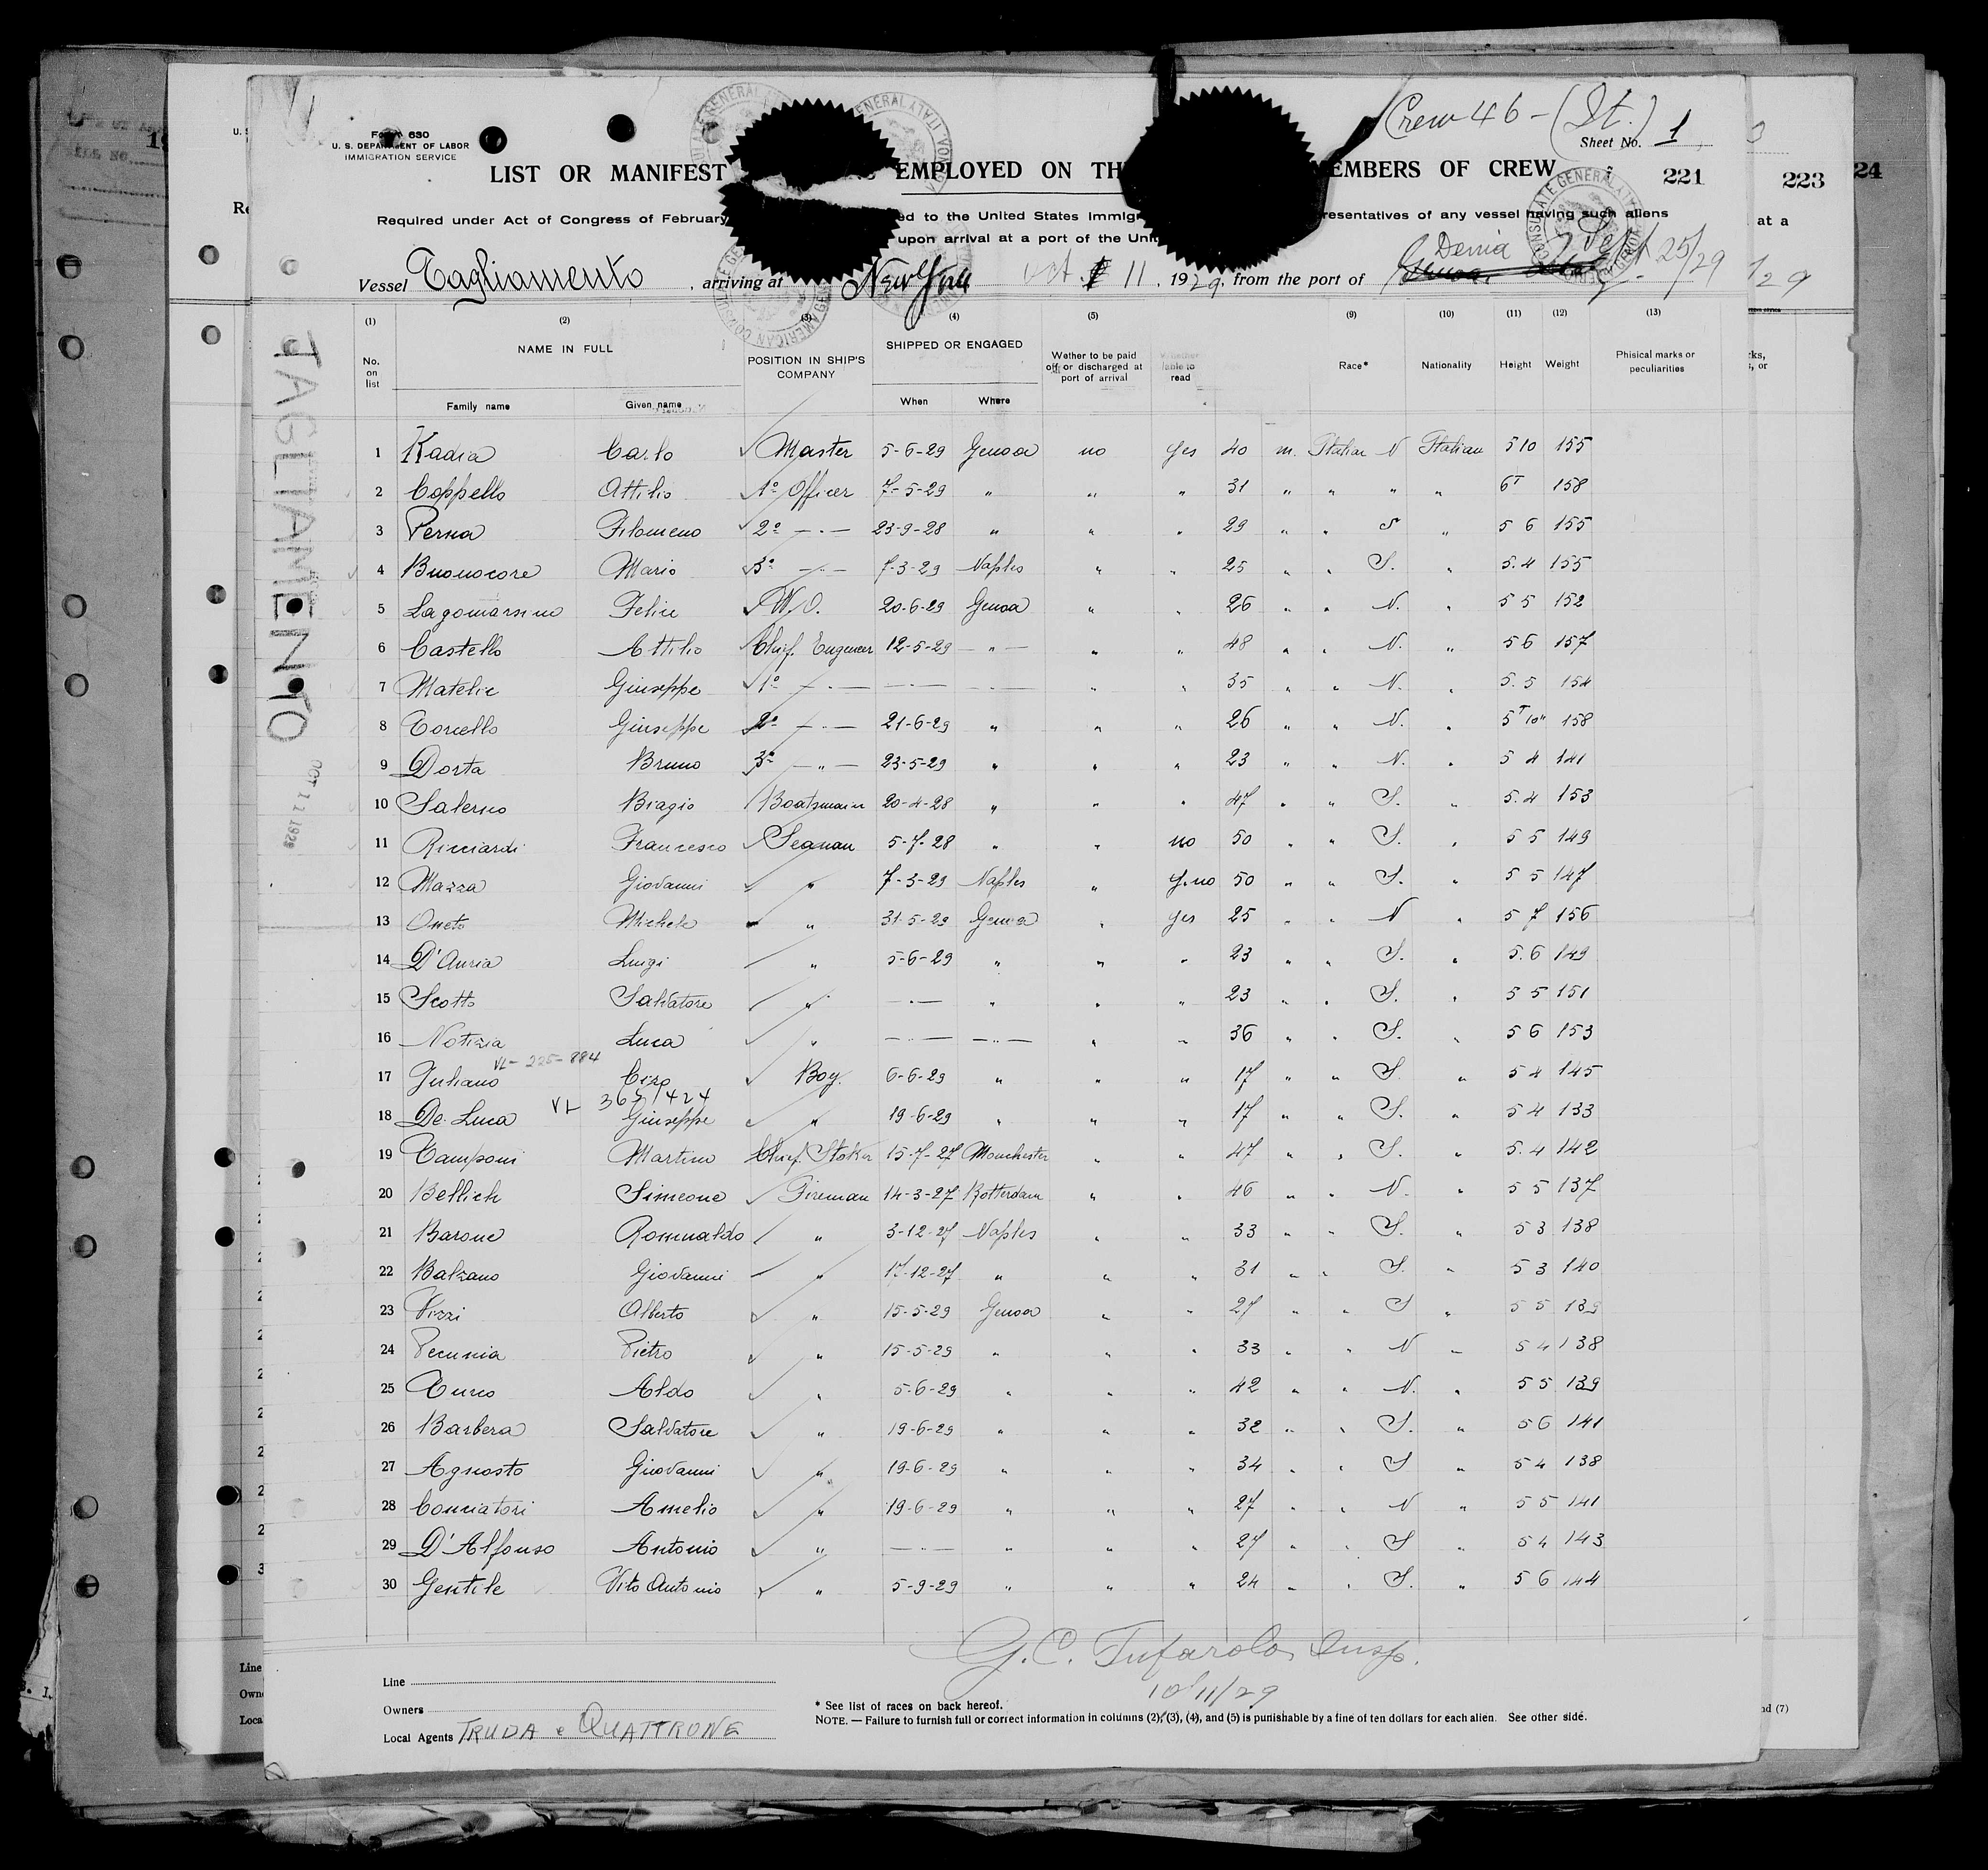 Crew 46 - (It.)
Form 680
U. S. DEPARTMENT OF LABOR
IMMIGRATION SERVICE
Sheet No. 1
LIST OR MANIFEST EMPLOYED ON TH EMBERS OF CREW 221
223
24
Required under Act of Congress of February ed to the United States Immigr resentatives of any vessel having such aliens
upon arrival at a port of the Unit
Denia Sept 25/29
Vessel Tagliamento , arriving at New York Oct. 11 , 1929, from the port of
TAGLIAMENTO
OCT 11 1929
(1) (2) (3) (4) (5) (9) (10) (11) (12) (13)
No. on list NAME IN FULL POSITION IN SHIP'S COMPANY SHIPPED OR ENGAGED Wether to be paid off or discharged at port of arrival Whether able to read Race* Nationality Height Weight Phisical marks or peculiarities
Family name Given name When Where
1 Kadia Carlo Master 5-6-29 Genoa no yes 40 m. Italian N Italian 5 10 155
2 Coppello Attilio 1º Officer 7-5-29 " " " 31 " " " " 6 158
3 Perna Filomeno 2º -"- 23-9-28 " " " 29 " " S " 5 6 155
4 Buonocore Mario 3º -"- 7-3-29 Naples " " 25 " " S. " 5.4 155
5 Lagomarsino Felice W/O. 20-6-29 Genoa " " 26 " " N. " 5 5 152
6 Castello Attilio Chief. Engeneer 12-5-29 -"- " " 48 " " N. " 5 6 157
7 Matelic Giuseppe 1º -"- -"- -"- " " 35 " " N. " 5.5 154
8 Torcello Giuseppe 2º -"- 21-6-29 " " " 26 " " N. " 5 10" 158
9 Dorta Bruno 3º -"- 23-5-29 " " " 23 " " N. " 5 4 141
10 Salerno Biagio Boatsmain 20-4-28 " " " 47 " " S. " 5.4 153
11 Ricciardi Francesco Seaman 5-7-28 " " no 50 " " S. " 5 5 149
12 Mazza Giovanni " 7-3-29 Naples " no 50 " " S. " 5 5 147
13 Oneto Michele " 31-5-29 Genoa " yes 25 " " N " 5 7 156
14 D'Auria Luigi " 5-6-29 " " " 23 " " S. " 5.6 149
15 Scotto Salvatore " -"- " " " 23 " " S. " 5 5 151
16 Notizia Luca " -"- -"- " " 36 " " S. " 5 6 153
VL - 225-884
17 Juliano Ciro Boy. 6-6-29 " " " 17 " " S " 5 4 145
VL 365/424
18 De Luca Giuseppe " 19-6-29 " " " 17 " " S. " 5 4 133
19 Camponi Martino Chief. Stoker 15-7-27 Manchester " " 47 " " S. " 5.4 142
20 Bellich Simeone Fireman 14-3-27 Rotterdam " " 46 " " N. " 5 5 137
21 Barone Romualdo " 3-12-27 Naples " " 33 " " S. " 5 3 138
22 Balzano Giovanni " 17-12-27 " " " 31 " " S. " 5 3 140
23 Vizzi Alberto " 15-5-29 Genoa " " 27 " " S " 5 5 139
24 Pecunia Pietro " 15-5-29 " " " 33 " " N " 5 4 138
25 Curco Aldo " 5-6-29 " " " 42 " " N. " 5 5 139
26 Barbera Salvatore " 19-6-29 " " " 32 " " S. " 5 6 141
27 Agnosto Giovanni " 19-6-29 " " " 34 " " S " 5 4 138
28 Conciatori Amelio " 19-6-29 " " " 27 " " N " 5 5 141
29 D'Alfonso Antonio " -"- " " " 27 " " S " 5 4 143
30 Gentile Vito Antonio " 5-9-29 " " " 24 " " S. " 5 6 144
G. C. Tufarolo Insp.
10/11/29
Line
Owners
Local Agents TRUDA e QUATTRONE
* See list of races on back hereof.
NOTE. — Failure to furnish full or correct information in columns (2), (3), (4), and (5) is punishable by a fine of ten dollars for each alien. See other side.